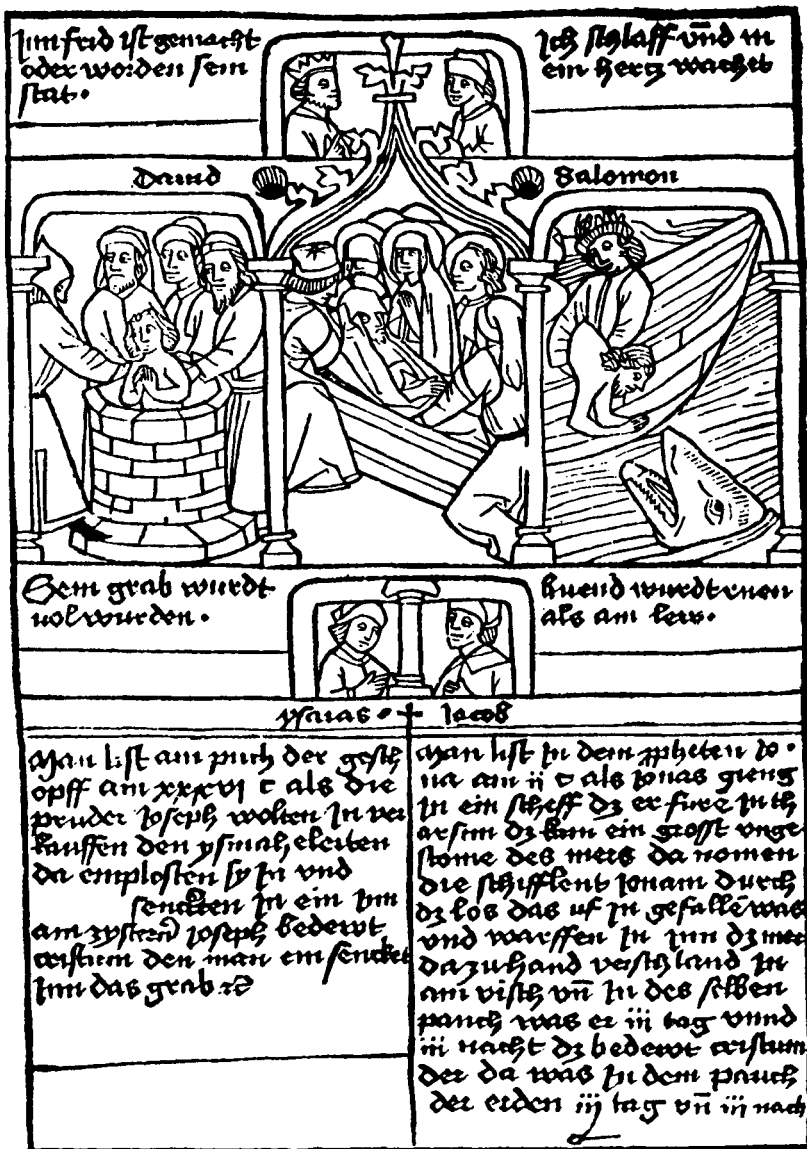 Inn frid ist gemacht
oder worden sein
stat.
Ich schlaff vnd m
ein hertz wachet
Dauid
Salomon
Sein grab wurdt
vol wurden.
als ain lew.
ysaias.
Jacob
Man list am puch der gesch
öpff am xxxvi c als die
pruder Joseph wolten In ver
kauffen den ysmaheleiten
da emplosten sy In vnd
senckten In ein Inn
am Joseph bedewt
cristum den man ein sencket
Inn das grab
Man list In dem ppheten Jo.
na am ij c als Jonas gieng
In ein scheff dz er fure In th
arsim dz kam ein grosst vnge
stome des mers da nomen
die schifflent Jonam durch
dz los das uf In gefallē was
vnd warffen In Inn dz mer
da zuhand verschland In
am visch vn̄ In des selben
pauch was er iii tag vnnd
iii nacht dz bedewt cristum
der da was In dem pauch
der erden iij tag vn̄ iii nach